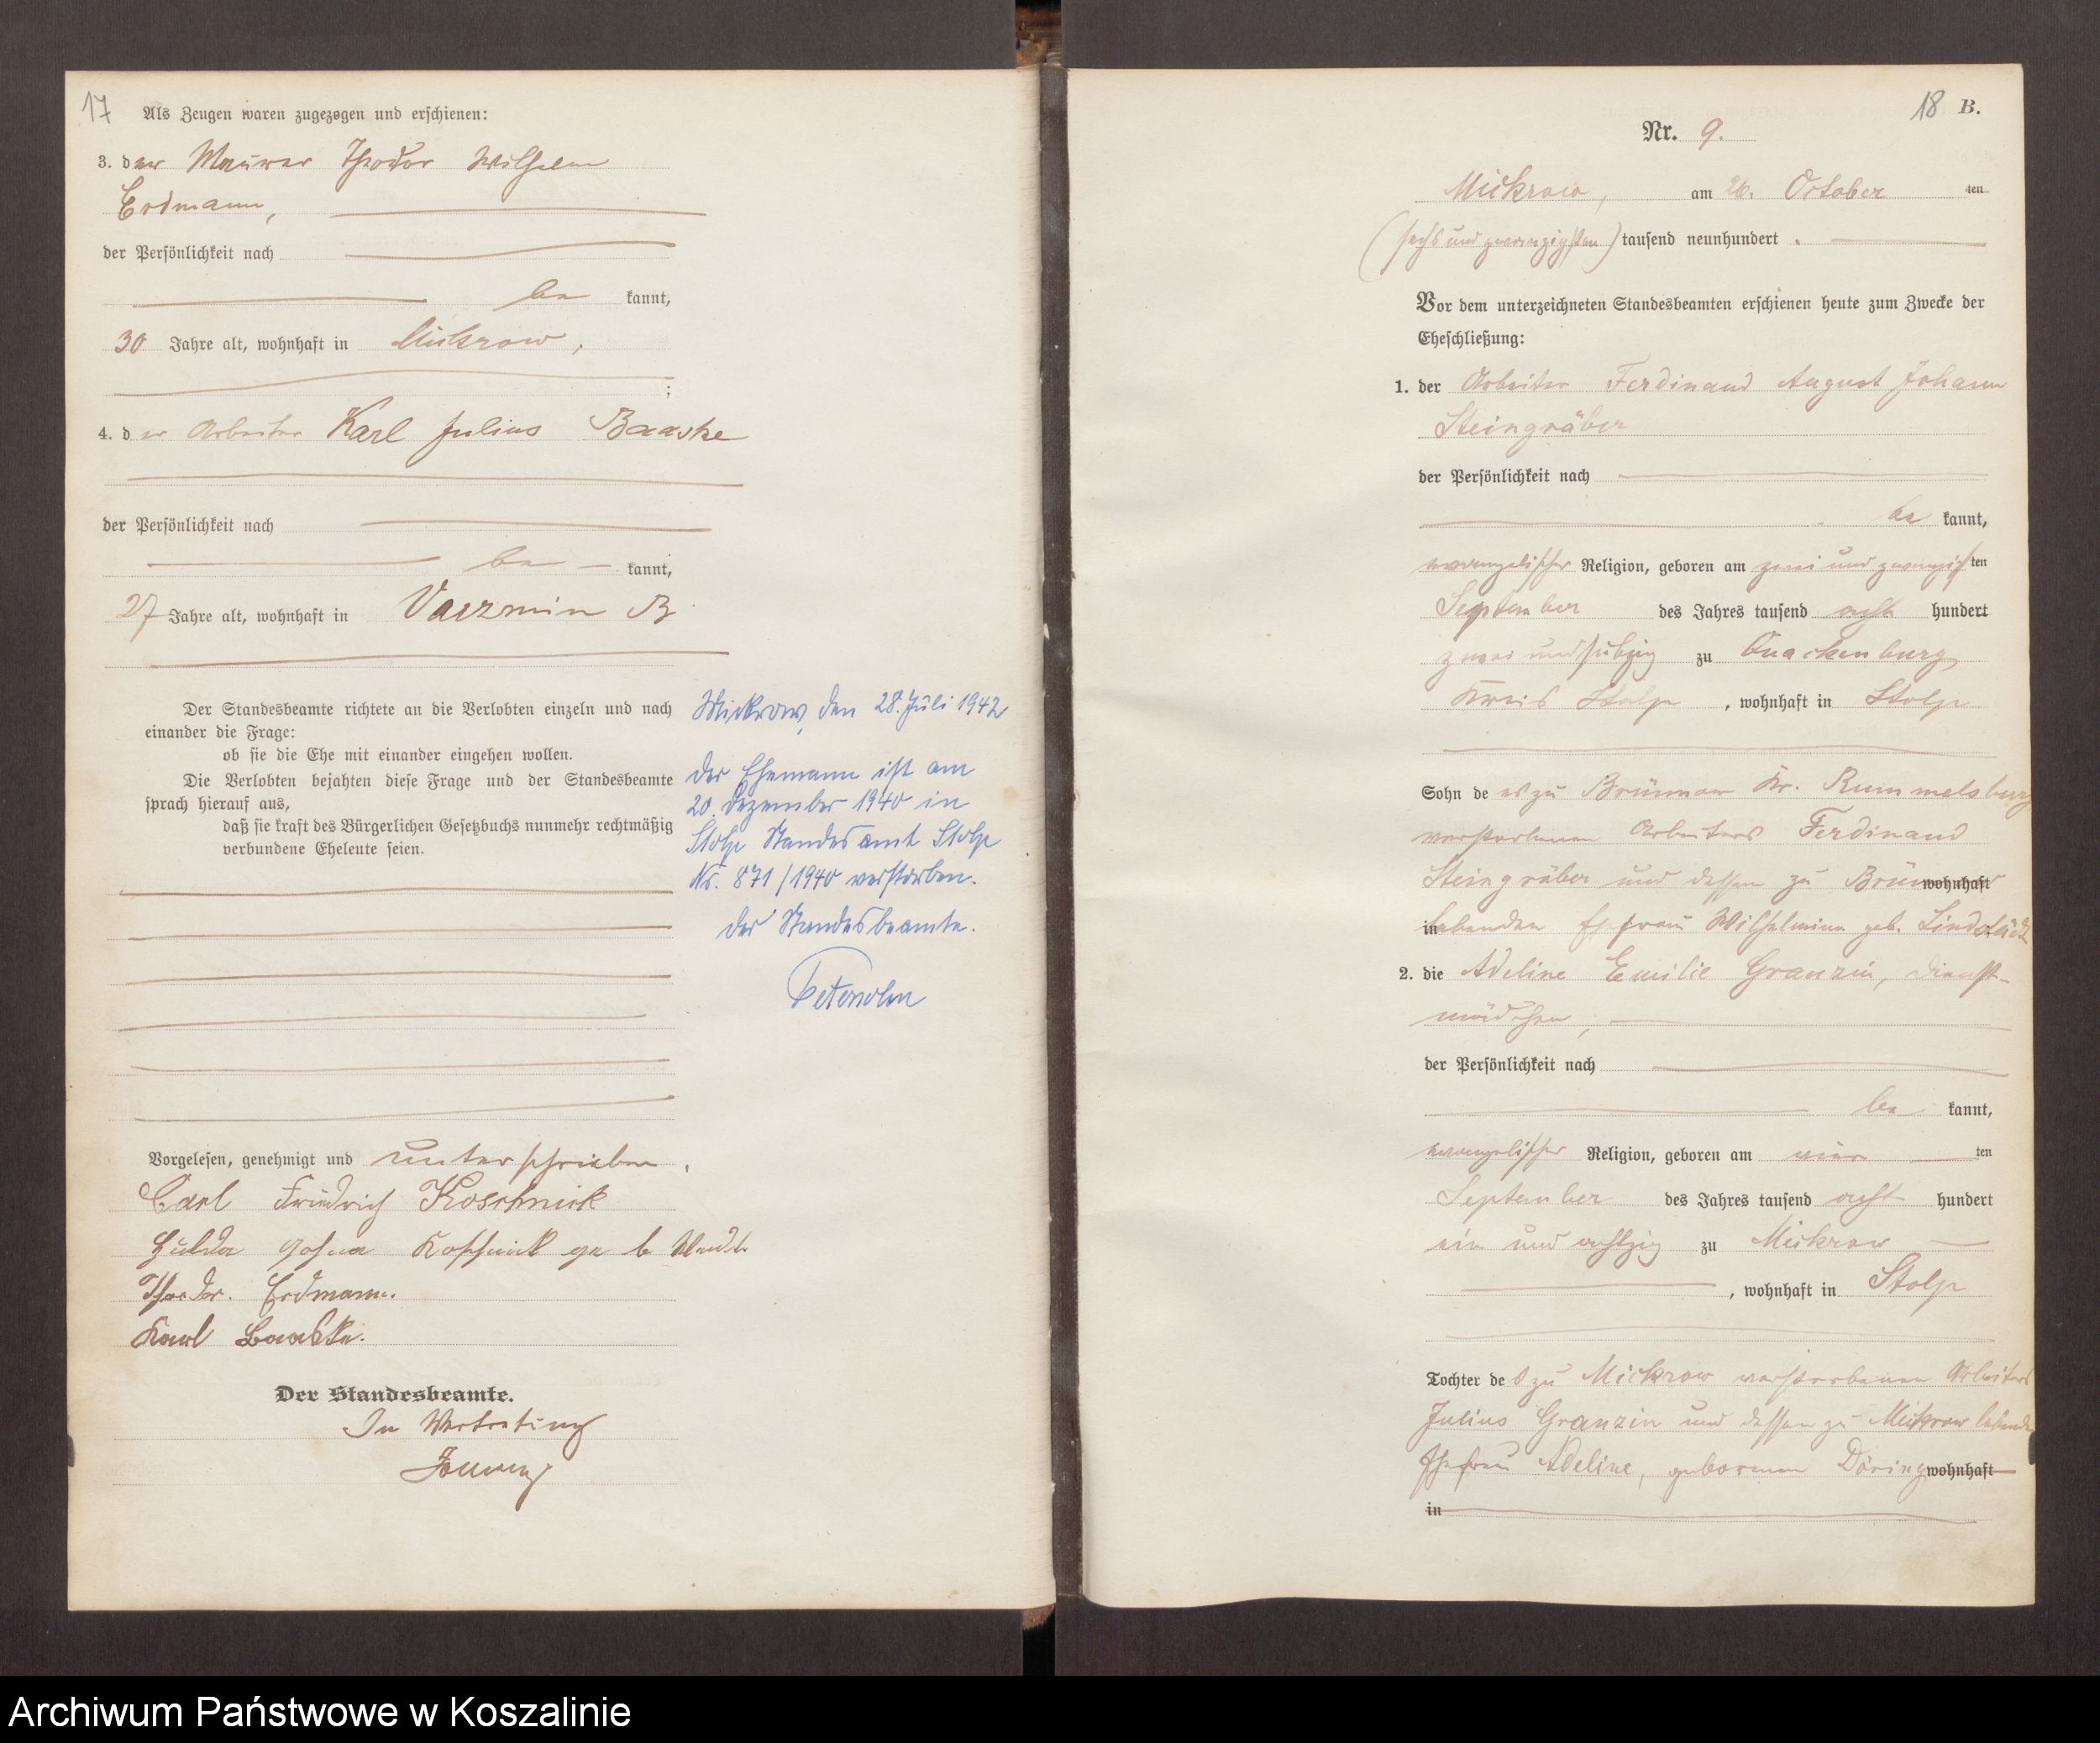 17
Als Zeugen waren zugezogen und erschienen:
3. der Maurer Theodor Wilhelm
Erdmann,
der Persönlichkeit nach
be kannt,
30 Jahre alt, wohnhaft in Mickrow,
;
4. der Arbeiter Karl Julius Baaske
der Persönlichkeit nach
be kannt,
27 Jahre alt, wohnhaft in Varzmin B
Der Standesbeamte richtete an die Verlobten einzeln und nach
einander die Frage:
ob sie die Ehe mit einander eingehen wollen.
Die Verlobten bejahten diese Frage und der Standesbeamte
sprach hierauf aus,
daß sie kraft des Bürgerlichen Gesetzbuchs nunmehr rechtmäßig
verbundene Eheleute seien.
Mickrow, den 28. Juli 1942
Der Ehemann ist am
20. Dezember 1940 in
Stolp Standesamt Stolp
Nr. 871/1940 verstorben.
Der Standesbeamte.
Vorgelesen, genehmigt und unterschrieben.
Carl Friedrich Koschnick
Hulda Koschnick geb
Theodor. Erdmann.
Karl Baaske.
Der Standesbeamte.
In Vertretung
18 B.
Nr. 9.
Mickrow, am 26. October ten
(sechs und zwanzigsten) tausend neunhundert.
Vor dem unterzeichneten Standesbeamten erschienen heute zum Zwecke der
Eheschließung:
1. der Arbeiter Ferdinand August Johann
Steingräber
der Persönlichkeit nach
be kannt,
evangelischer Religion, geboren am zwei und zwanzigsten
September des Jahres tausend acht hundert
zwei und siebzig zu Quackenburg
Kreis Stolp, wohnhaft in Stolp
Sohn des zu Brünnow Kr. Rummelsburg
verstorbenen Arbeiters Ferdinand
Steingräber und dessen zu wohnhaft
in lebenden Ehefrau Wilhelmine geb.
2. die Adeline Emilie Granzin, Dienst-
mädchen,
der Persönlichkeit nach
be kannt,
evangelischer Religion, geboren am vier ten
September des Jahres tausend acht hundert
ein und achtzig zu Mickrow
, wohnhaft in Stolp
Tochter des zu Mickrow verstorbenen Arbeiters
Julius Granzin und dessen zu Mickrow lebenden
Ehefrau Adeline, geborenen Döring wohnhaft
in
Archiwum Państwowe w Koszalinie